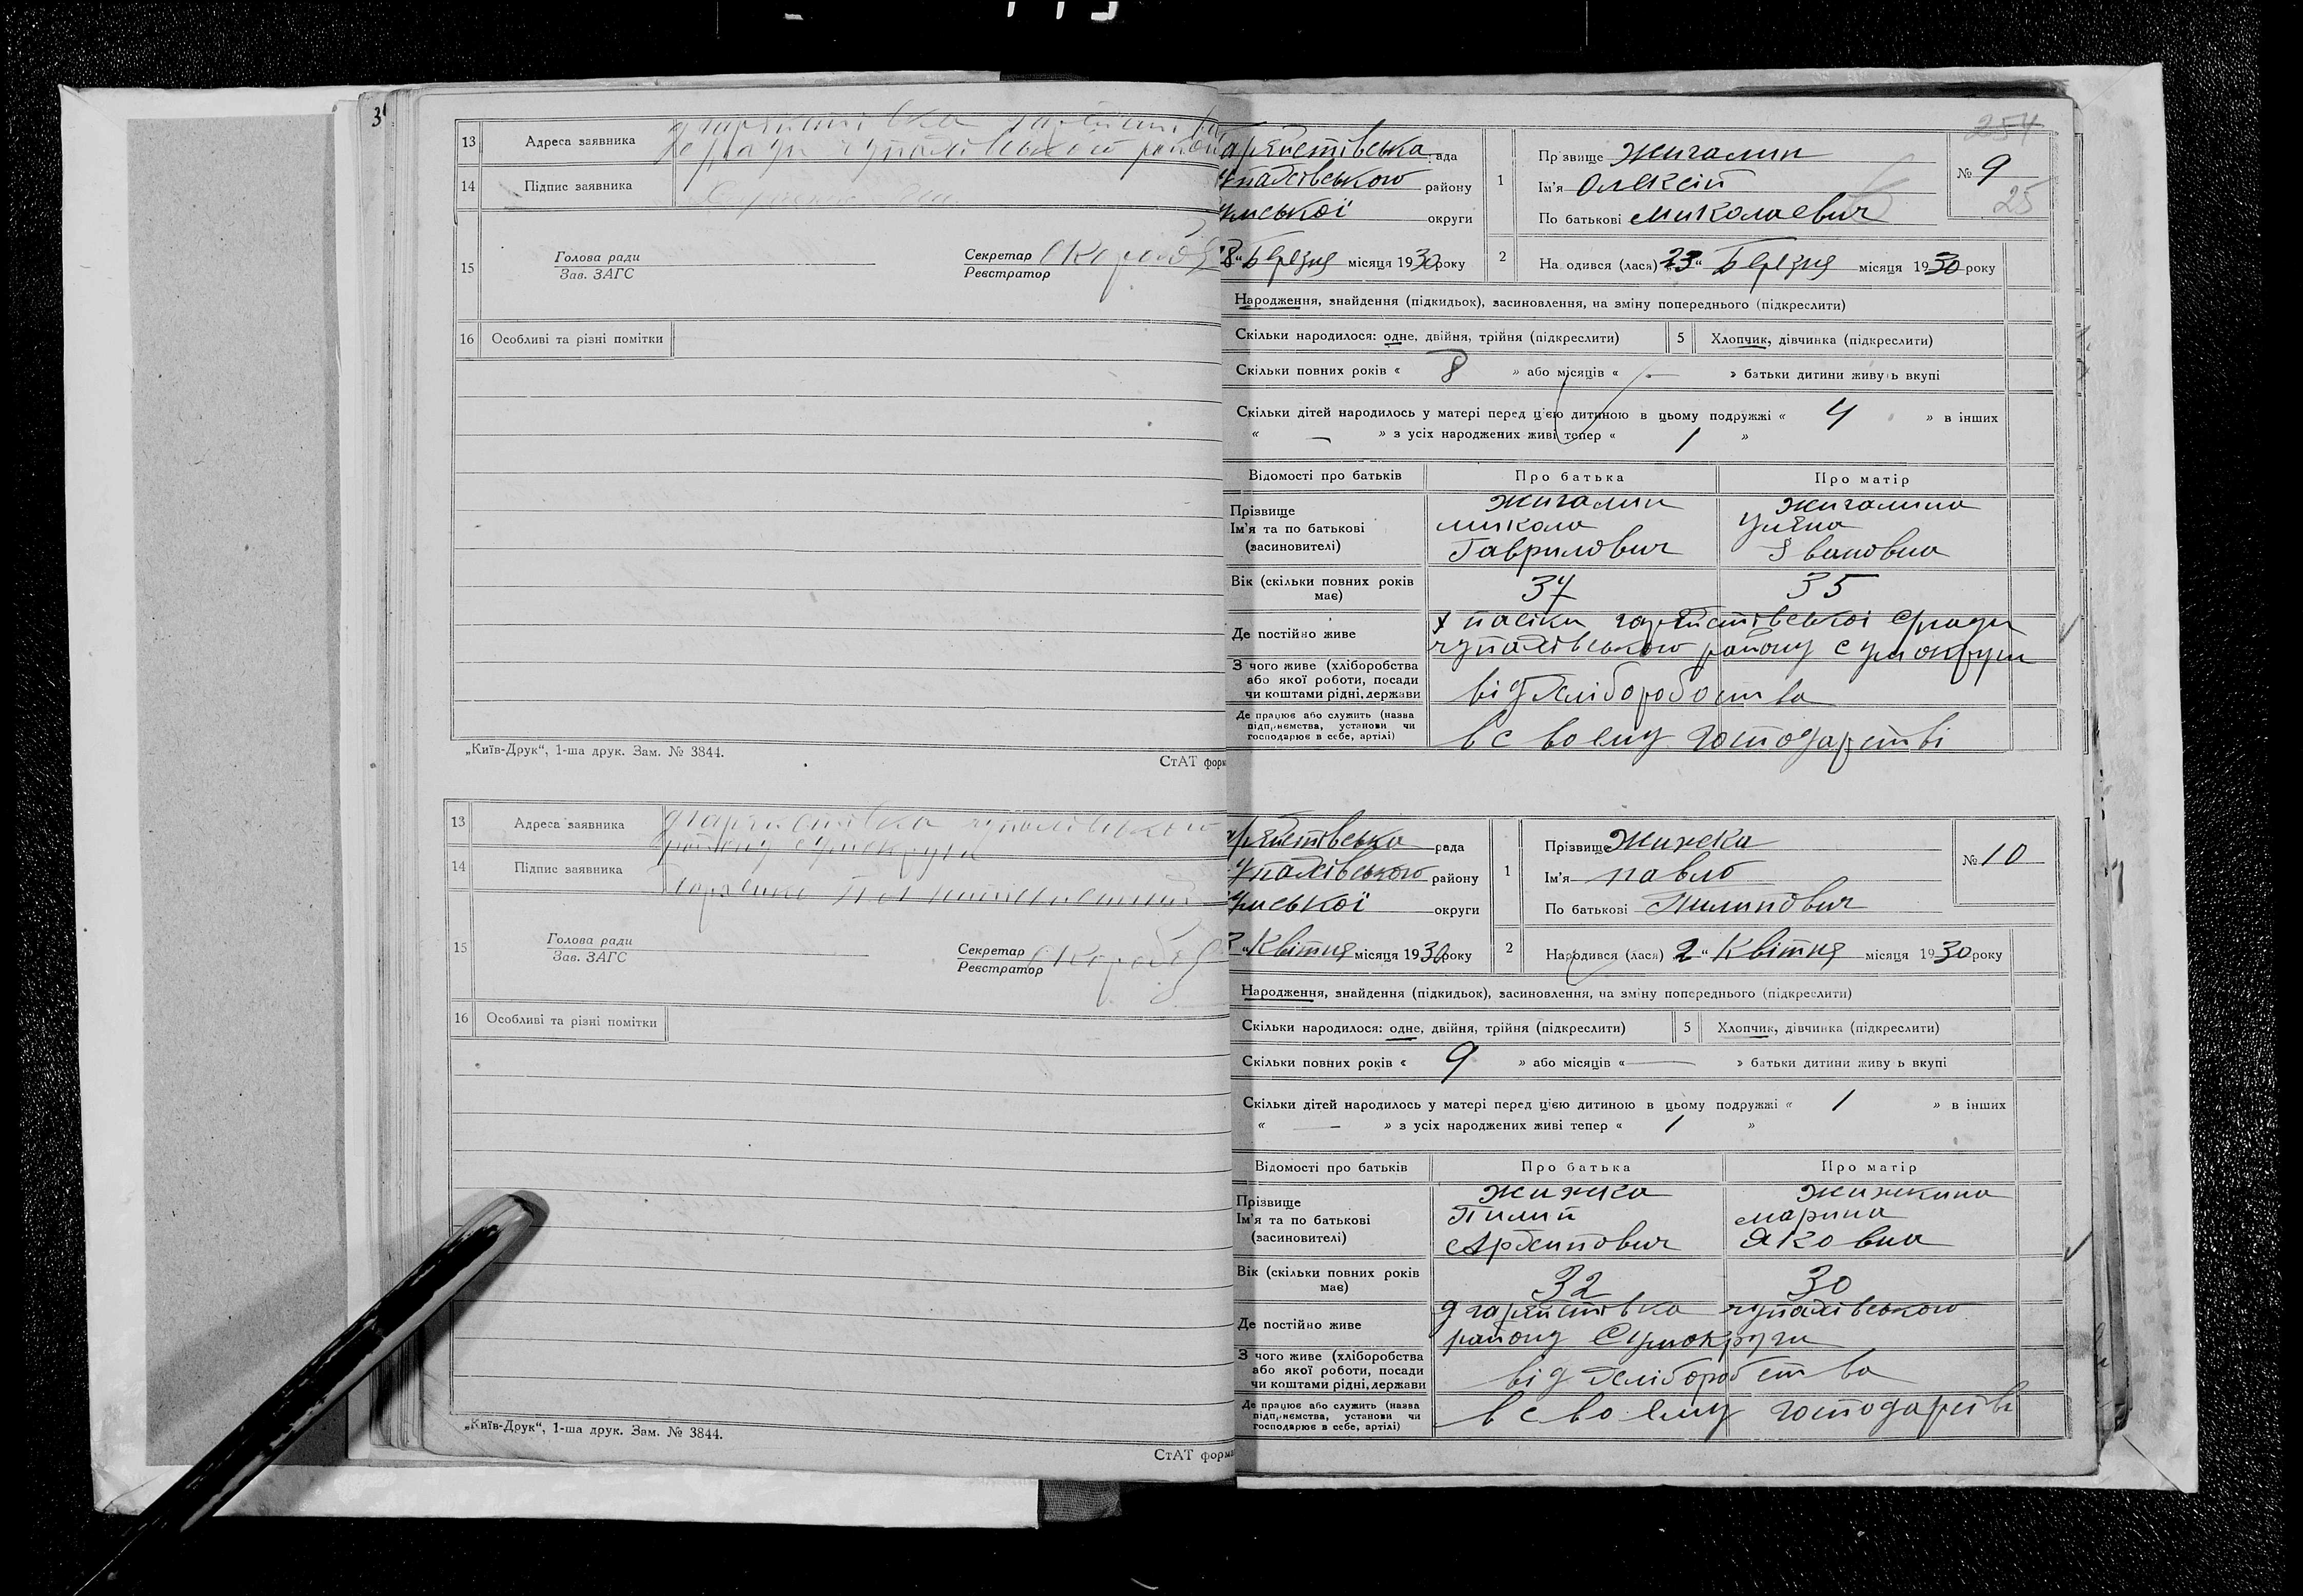 3
13 Адреса заявника
14 Підпис заявника
15 Голова ради
Зав. ЗАГС
Секретар
Реєстратор
16 Особливі та різні помітки
„Київ-Друк“, 1-ша друк. Зам. № 3844.
СтАТ форм
13 Адреса заявника
14 Підпис заявника
15 Голова ради
Зав. ЗАГС
Секретар
Реєстратор
16 Особливі та різні помітки
„Київ-Друк“, 1-ша друк. Зам. № 3844.
СтАТ форма
254
рада
району
мської округи
8“ Березня місяця 1930 року
1 Пр звище Жигалин
Ім'я Олексій
По батькові Миколаевич
№ 9
25
2 На одився (лася) 23“ Березня місяця 1930 року
Народження, знайдення (підкидьок), засиновлення, на зміну попереднього (підкреслити)
Скільки народилося: одне, двійня, трійня (підкреслити) 5 Хлопчик, дівчинка (підкреслити)
Скільки повних років « 8 » або місяців « — » батьки дитини живу ь вкупі
Скільки дітей народилось у матері перед ц'єю дитиною в цьому подружжі « 4 » в інших
« — » з усіх народжених живі тепер « 1 »
Відомості про батьків Про батька Про матір
Прізвище Жигалин Жигалина
Ім'я та по батькові Микола Уляна
(засиновителі) Гаврилович Івановна
Вік (скільки повних років має) 37 35
Де постійно живе х пасіки гаряйстівської с/ради
чупахівського району Сумокруги
З чого живе (хліборобства
або якої роботи, посади
чи коштами рідні, держави від хліборобства
Де працює або служить (назва
підпр‚нємства, установи чи
господарює в себе, артілі) в своему господарстві
рада
району
мської округи
3 “ Квітня місяця 1930 року
1 Прізвище Жижека
Ім'я павло
По батькові Пилипович
№ 10
2 Народився (лася) 2“ Квітня місяця 1930 року
Народження, знайдення (підкидьок), засиновлення, на зміну попереднього (підкреслити)
Скільки народилося: одне, двійня, трійня (підкреслити) 5 Хлопчик, дівчинка (підкреслити)
Скільки повних років « 9 » або місяців « — » батьки дитини живу ь вкупі
Скільки дітей народилось у матері перед ц'єю дитиною в цьому подружжі « 1 » в інших
« — » з усіх народжених живі тепер « 1 »
Відомості про батьків Про батька Про матір
Прізвище Жижека Жижекина
Ім'я та по батькові Пилип марина
(засиновителі) Архипович Яковна
Вік (скільки повних років має) 32 30
Де постійно живе чупахівського
району Сумокруги
З чого живе (хліборобства
або якої роботи, посади
чи коштами рідні, держави від хліборобства
Де працює або служить (назва
підпр‚нємства, установи чи
господарює в себе, артілі) в своему господарстві